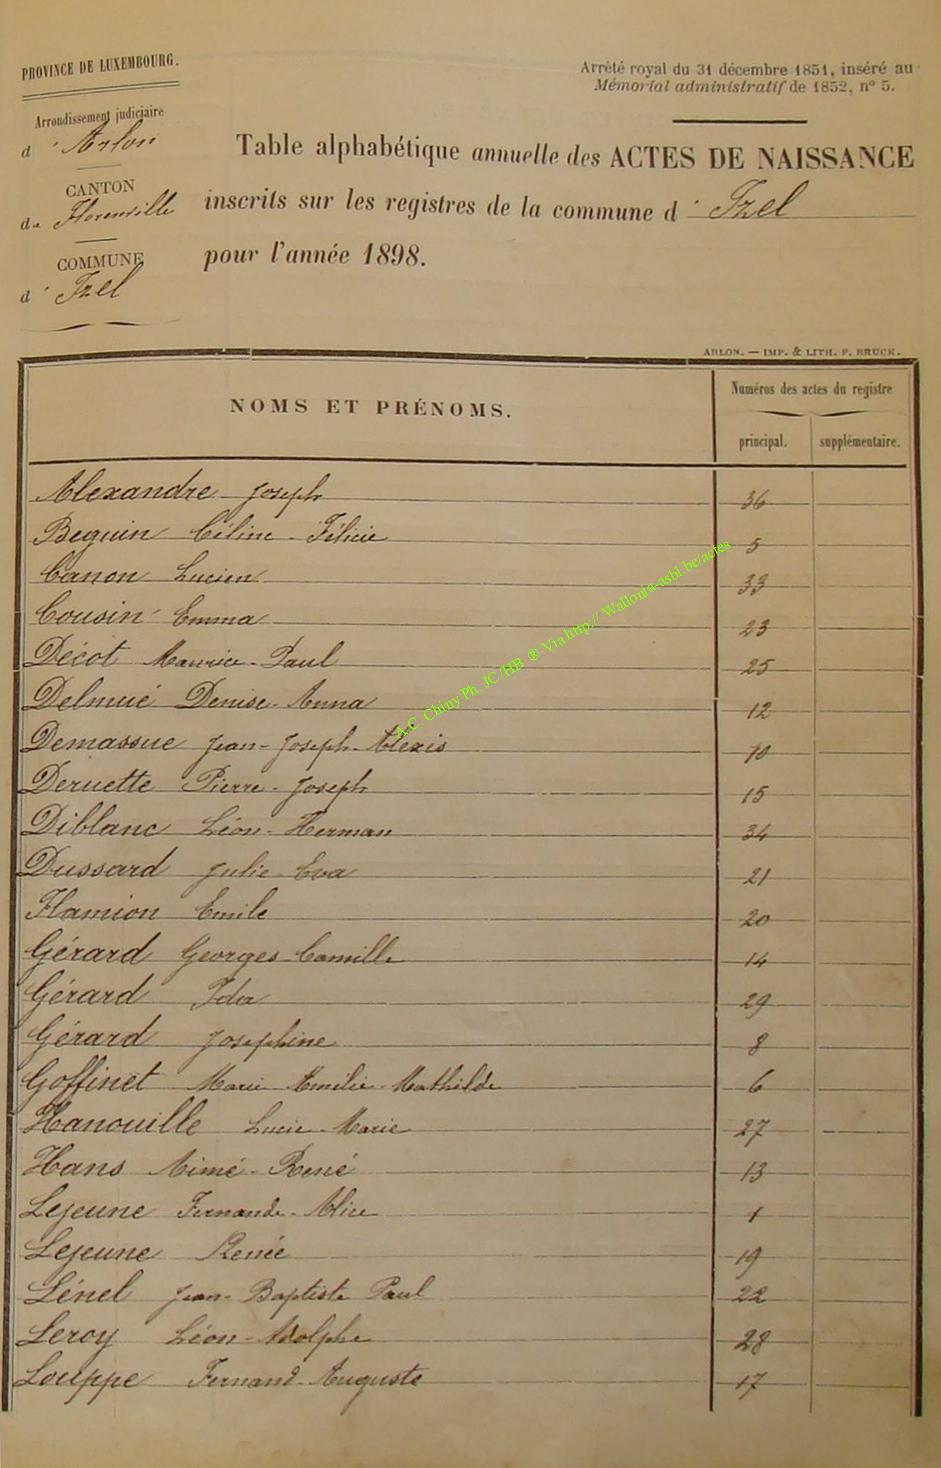 PROVINCE DE LUXEMBOURG.
Arrêté royal du 31 décembre 1851, inséré au
Mémorial administratif de 1852, n° 5.
Arrondissement judiciaire
d'Arlon
CANTON
de Florenville
COMMUNE
d'Izel
Table alphabétique annuelle des ACTES DE NAISSANCE
inscrits sur les registres de la commune d'Izel
pour l'année 1898.
ARLON. — IMP. & LITH. F. BRUCK.
NOMS ET PRÉNOMS.
Numéros des actes du registre
principal. supplémentaire.
Alexandre Joseph 36
Beguin Céline-Félicie 5
Canon Lucien 33
Cousin Emma 23
Décot Maurice-Paul 25
Delmué Denise-Anna 12
Demassue Jean-Joseph-Alexis 10
Deruette Pierre-Joseph 15
Diblanc Léon-Herman 34
Dussard Julie-Eva 21
Flamion Emile 20
Gérard Georges-Camille 14
Gérard Ida 29
Gérard Joséphine 8
Goffinet Marie-Amélie-Mathilde 6
Hanouille Lucie-Marie 27
Hans Aimé-René 13
Lejeune Fernande-Alice 1
Lejeune Renée 19
Lénel Jean-Baptiste Paul 22
Leroy Léon-Adolphe 28
Louppe Fernand-Auguste 17
A.C. Chiny Ph. JC/HB ® Via http:// Wallonia-asbl.be/actes